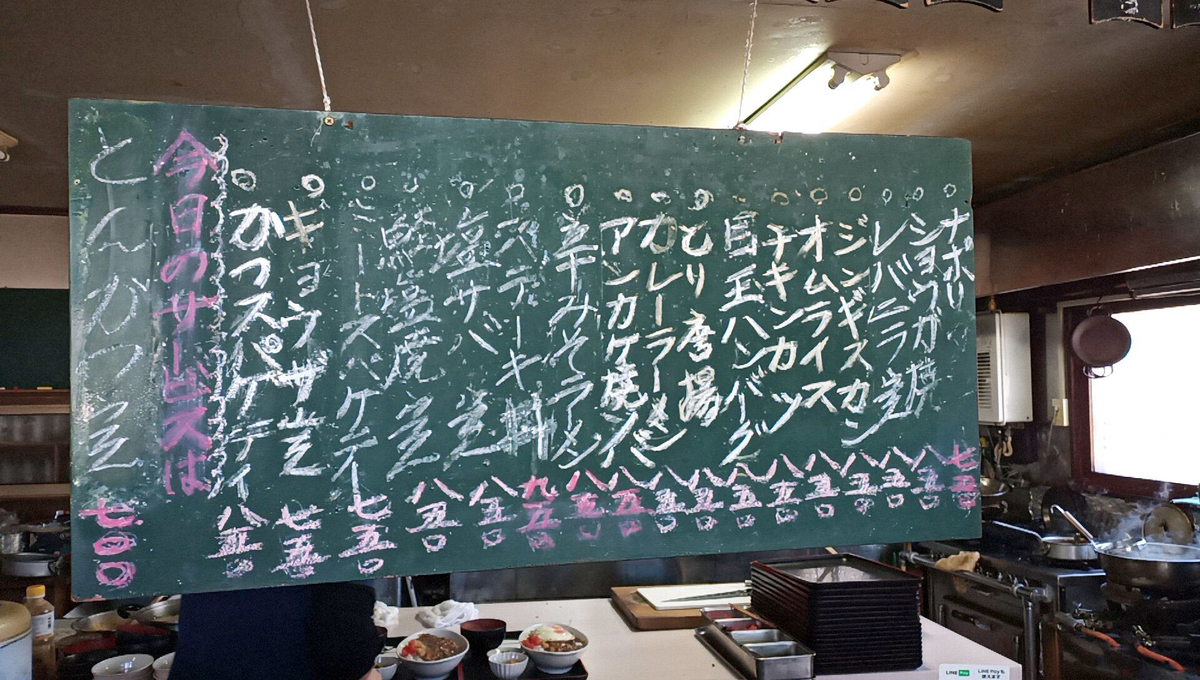 ○ナポリ 七五〇
○ショウガ焼 八五〇
○レバニラ定 八五〇
○ジンギスカン 八五〇
○オムライス 八五〇
○チキンカツ 八五〇
○目玉ハンバーグ 八五〇
○とり唐揚 八五〇
○カレーラーメン 八五〇
○アンカケ焼ソバ 八五〇
○辛みそラーメン 八五〇
○ステーキ丼 九五〇
○塩サバ定 八五〇
○鮭塩焼定 八五〇
○ミートスパゲティー 七五〇
○ギョウザ定 七五〇
○かつスパゲティ 八五〇
今日のサービスは
とんかつ定 七〇〇
LINE Pay
LINE Payも
使えます